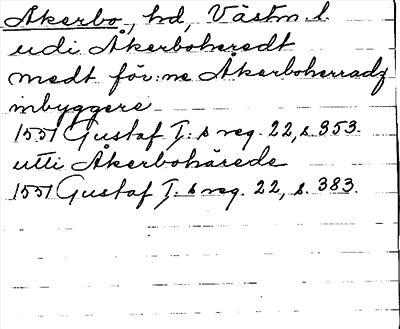 Åkerbo, hd, Västm. l.
udi Åkerboheredt
medt för:ne Åkerboherradz
inbyggere
1551 Gustaf I:s reg. 22, s. 353.
utti Åkerbohärede
1551 Gustaf I:s reg. 22, s. 383.